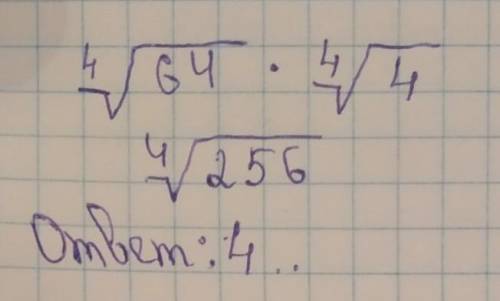 ⁴√64 · ⁴√4
⁴√256
Ответ: 4..